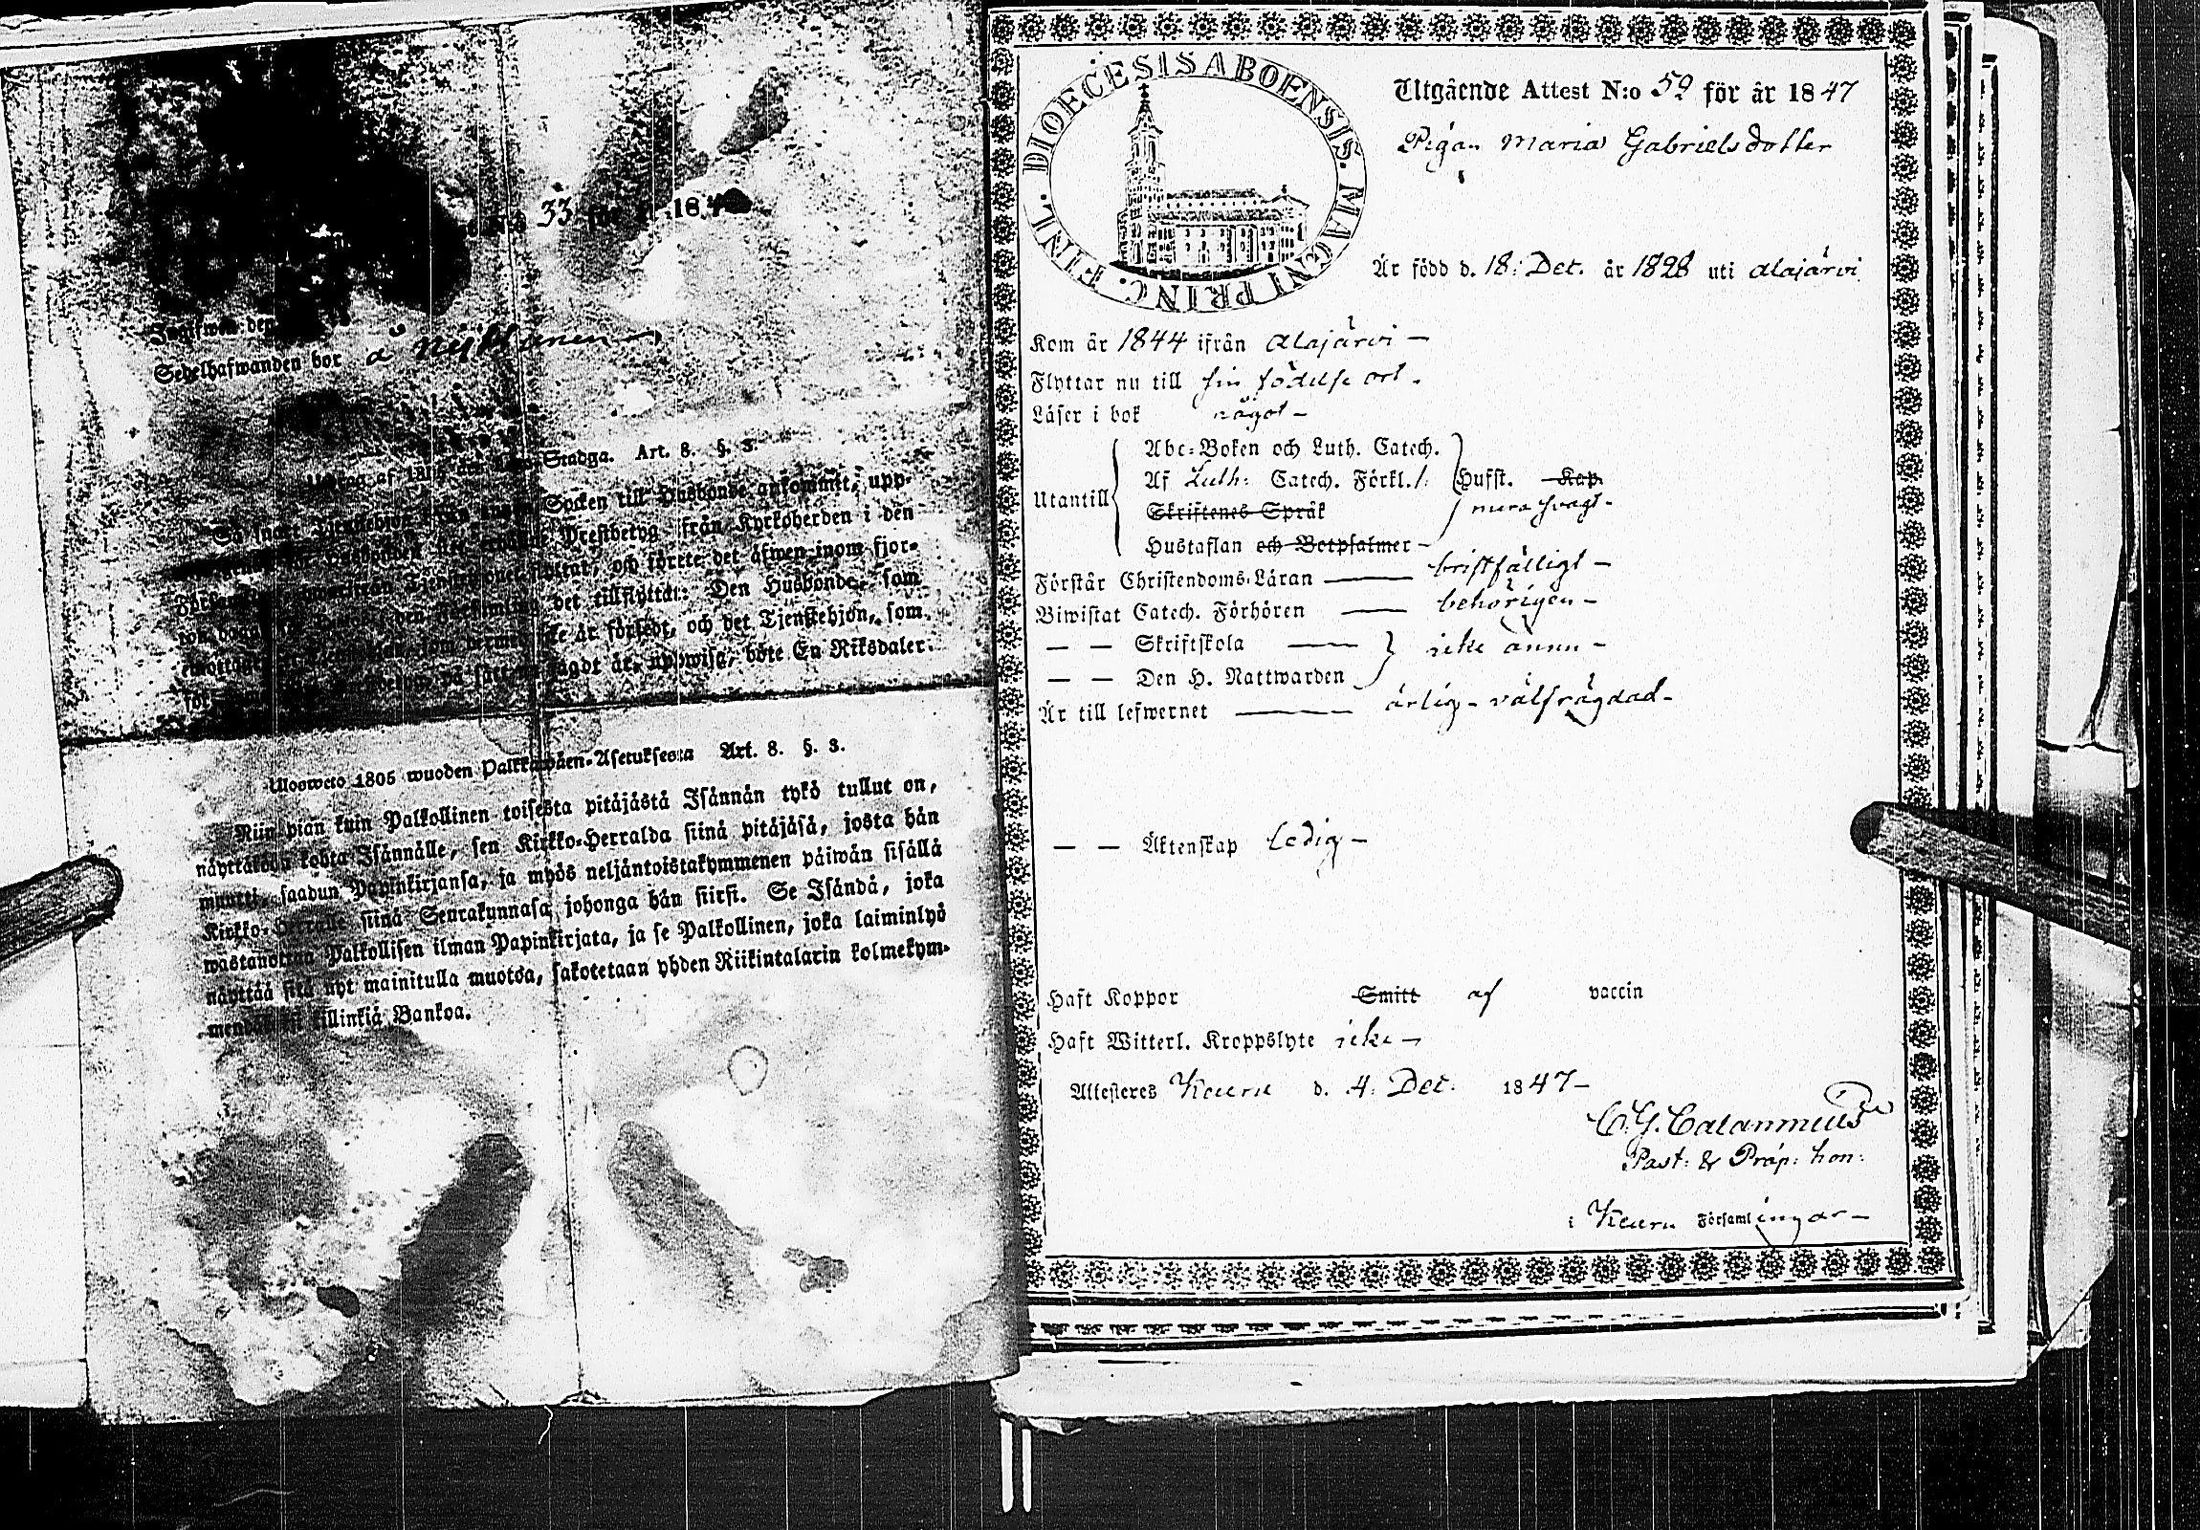 33 för 184
Sedelhafwanden bor å
Stadga. Art. 8. §. 3.
Socken till Husbonde ankommit, upp-
Prestbetyg från Kyrkoherden i den
flyttat, och förete det äfwen inom fjor-
det tillflyttat: Den Husbonde, som
de är förledt, och det Tjenstehjon, som
sagdt är, uppwisa, böte En Riksdaler
Uloswето 1805 wuoden Palkkawäen-Asetuksesta Art. 8. §. 3.
Niin pian kuin Palkollinen toisesta pitäjästä Isännän tykö tullut on,
näyttäköön kohta Isännälle, sen Kirkko-Herralda siinä pitäjäsä, josta hän
muutti, saadun Papinkirjansa, ja myös neljäntoistakymmenen päiwän sisällä
Kirkko-Herralle siinä Seurakunnasa johonga hän siirsi. Se Isändä, joka
wastanottaa Palkollisen ilman Papinkirjata, ja se Palkollinen, joka laiminlyö
näyttää sitä nyt mainitulla muotoa, sakotetaan yhden Riikintalarin kolmekym-
killinkiä Bankoa.
DIOECESIS ABOENSIS. MAGNI PRINC. FINL.
Utgående Attest N:o 59 för år 1847
Pigan Maria Gabrielsdotter
Är född d. 18: Dec. år 1828 uti Alajärvi
Kom år 1844 ifrån Alajärvi –
Flyttar nu till sin födelse ort.
Läser i bok något –
Utantill
Abc-Boken och Luth. Catech.
Af Luth: Catech. Förkl./. Hufst. Kap.
Skriftenes Språk mera svagt –
Hustaflan och Botpsalmer –
Förstår Christendoms-Läran — bristfälligt –
Biwistat Catech. Förhören — behörigen –
— — Skriftskola — icke ännu –
— — Den H. Nattwarden
Är till lefwernet — ärlig – välfrägdad –
— — Äktenskap ledig –
Haft Koppor Smitt af vaccin
Haft Witterl. Kroppslyte icke –
Attesteres Keuru d. 4: Dec. 1847 –
C. G. Calamnius
Past: & Præp: hon:
i Keuru Församlingar –